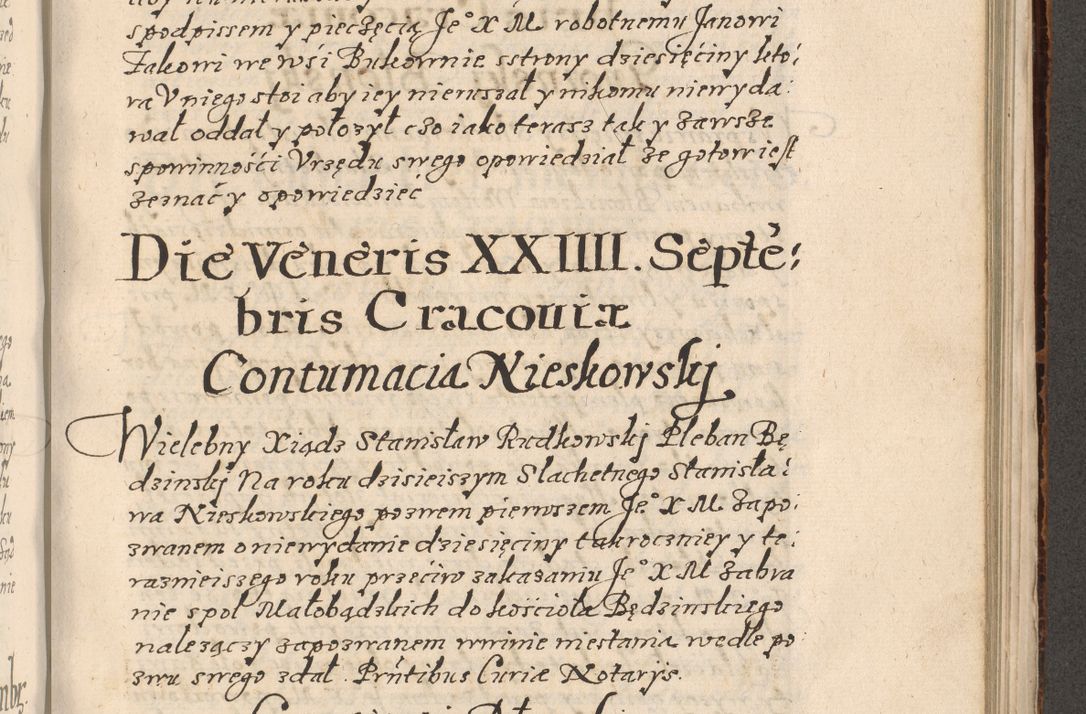 spodpissem y pieczęcią Je° X M robotnemu Janowi
Żakowi we wśi Bukownie sstrony dziesięciny któ:
ra V niego stoi aby iey nieruszał y nikomu niewyda:
wał oddał y położył czo iako terasz tak y zawsze
spowinnośći Vrzędu swego opowiedział że gotow iest
zeznać y opowiedzieć
Die Veneris XXIIII. Septē:
bris Cracouiæ
Contumacia Nieskowskj
Wielebny Xiądz Stanisław Rudkowskj Pleban Bę
dzinskj Na roku dzisieiszym Slachetnego Stanisła:
wa Nieskowskiego pozwem pierwszem Je° X M Zapo:
zwanem o niewydanie dziesięciny takroczniey y te:
raznieiszego roku przećiw zakazaniu Je° X M Zabra
nie spol Małobądzkich do kośćioła Będzinskiego
nalezączy zapozwanem wwinie niestania wedle po
zwu swego zdał. Pr̃ntibus Curiæ Notarijs.